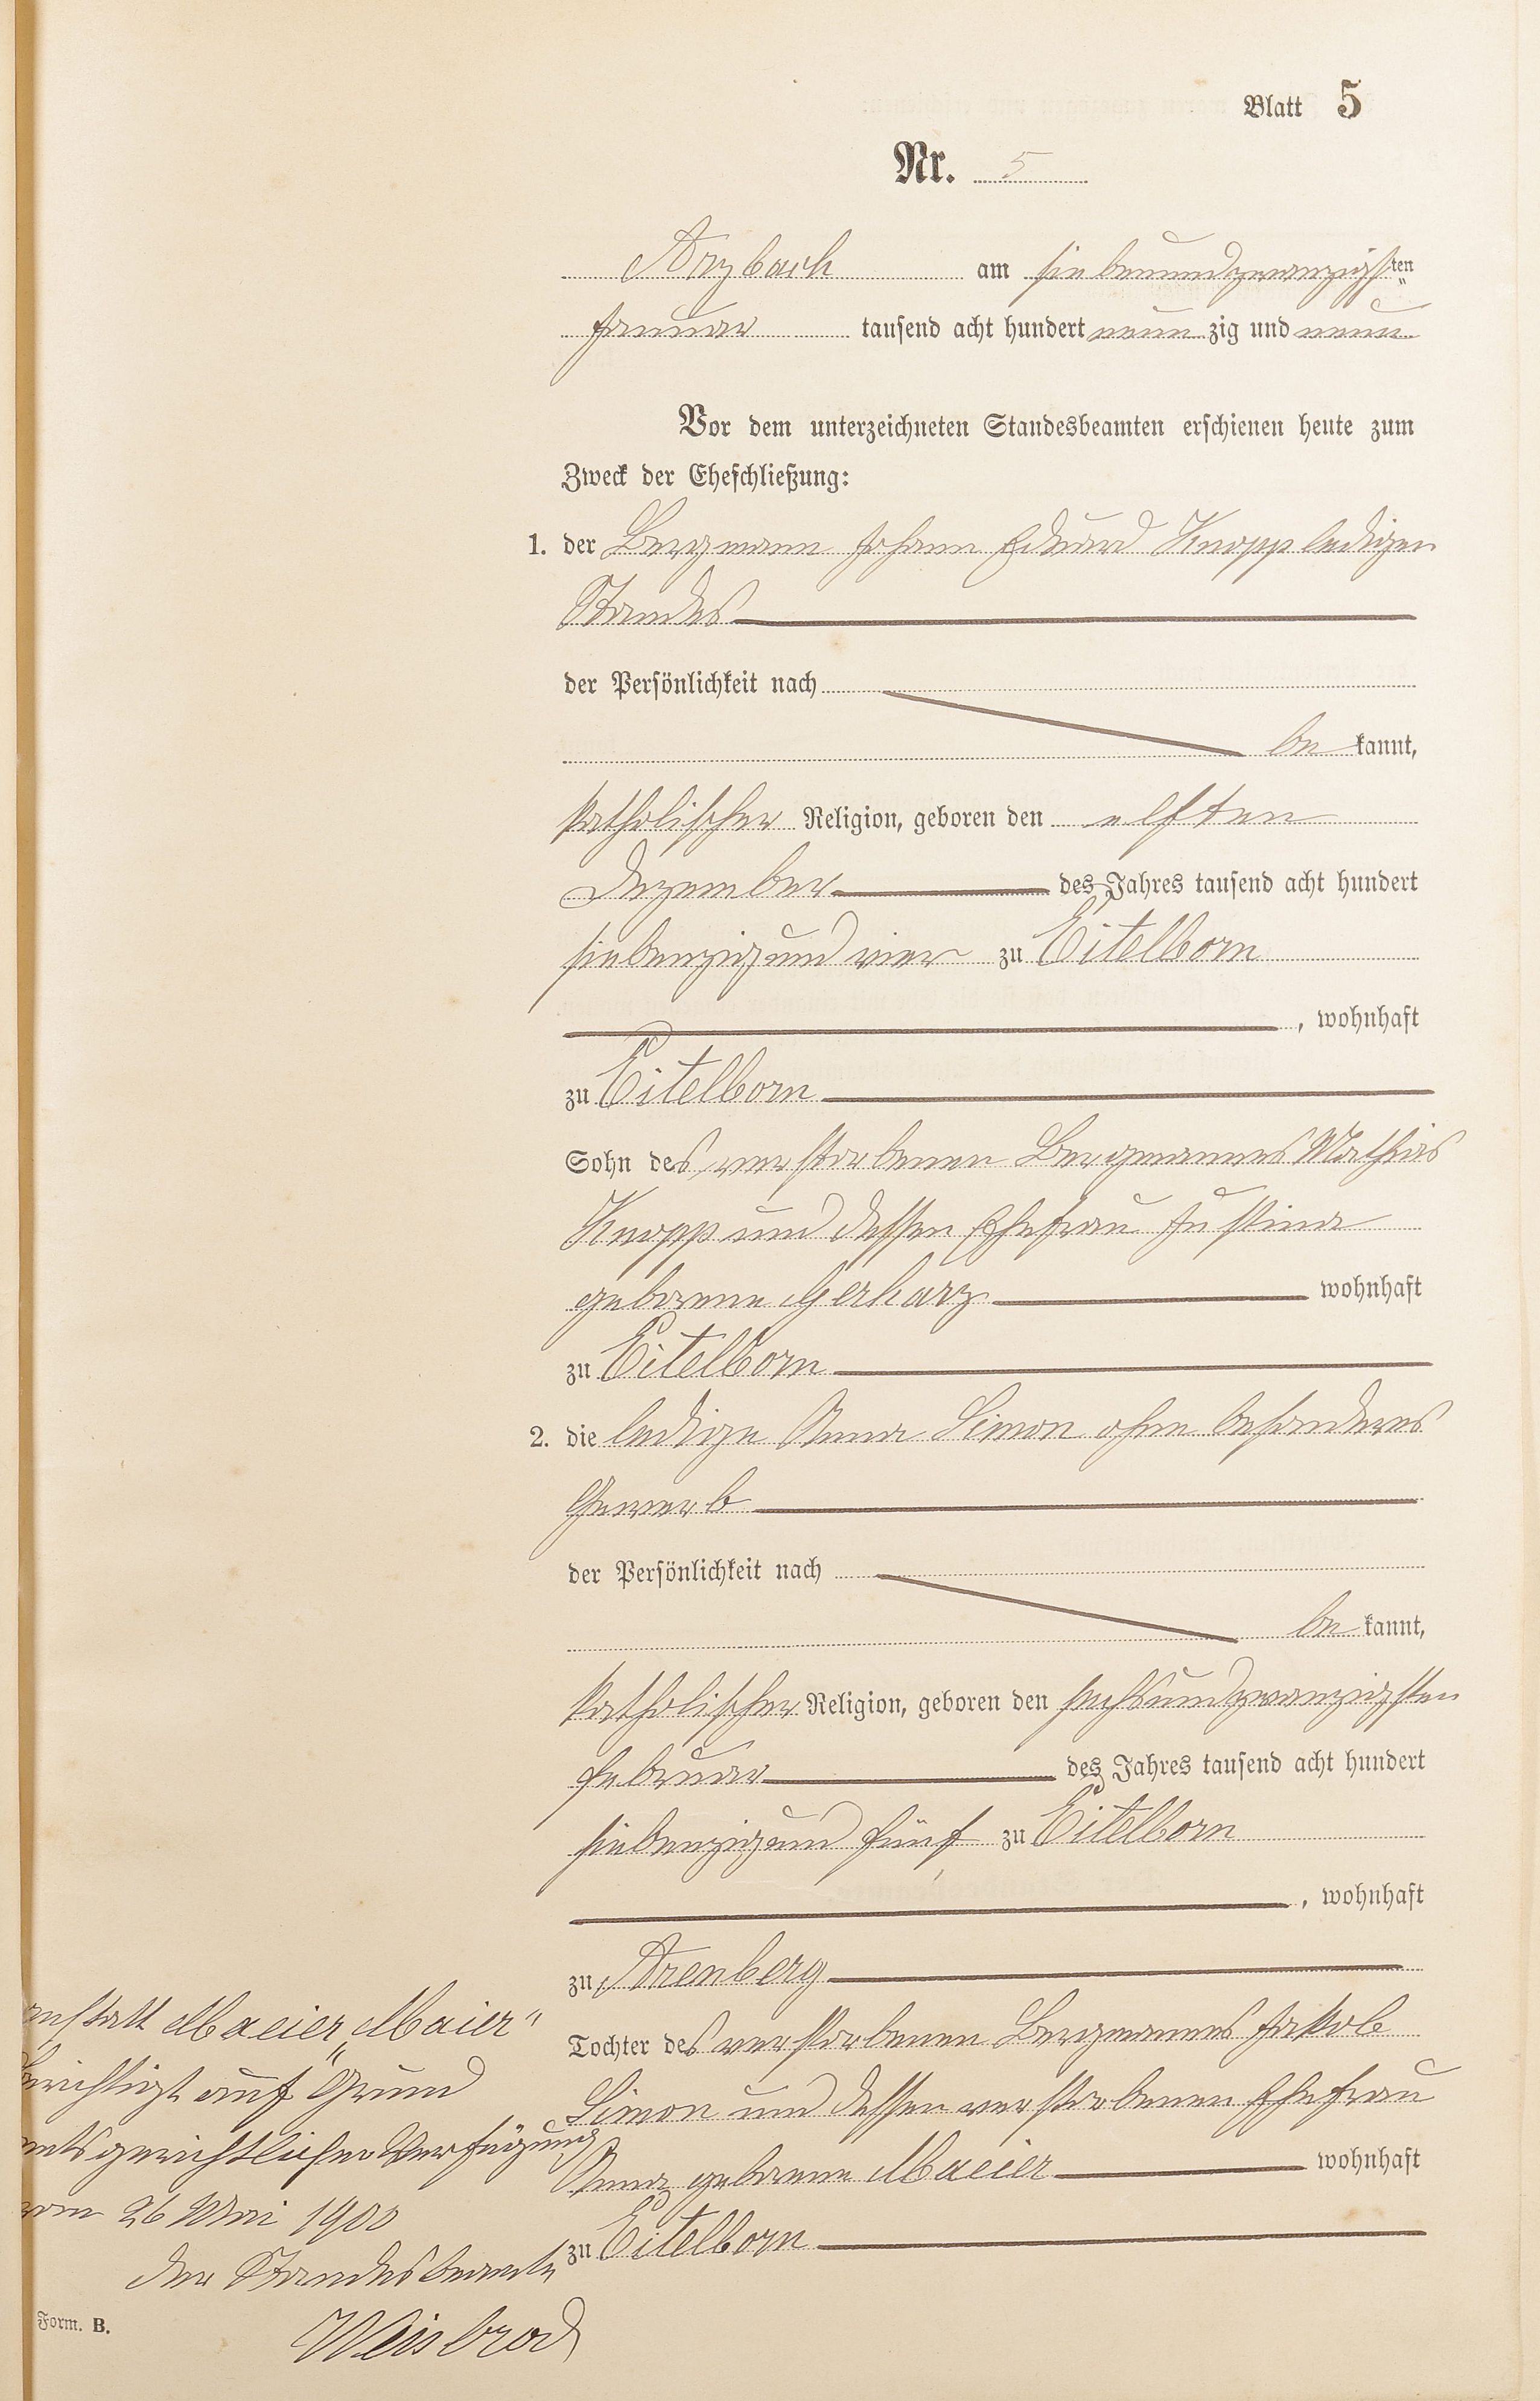 Blatt 5
Nr. 5
Arzbach am siebenundzwanzigsten
Januar tausend acht hundert neunzig und neun
Vor dem unterzeichneten Standesbeamten erschienen heute zum
Zweck der Eheschließung:
1. der Bergmann Johann Eduard Knopp ledigen
Standes
der Persönlichkeit nach
bekannt,
katholischer Religion, geboren den elften
Dezember des Jahres tausend acht hundert
siebenzig und vier zu Eitelborn
, wohnhaft
zu Eitelborn
Sohn des verstorbenen Bergmannes Mathias
Knopp und dessen Ehefrau Justina
geborene Gerharz wohnhaft
zu Eitelborn
2. die ledige Anna Simon ohne besonderes
Gewerb
der Persönlichkeit nach
bekannt,
katholischer Religion, geboren den sechsundzwanzigsten
Februar des Jahres tausend acht hundert
siebenzig und fünf zu Eitelborn
, wohnhaft
zu Arenberg
Tochter des verstorbenen Bergmannes Jakob
Simon und dessen verstorbenen Ehefrau
Anna geborene Maeier wohnhaft
zu Eitelborn
anstatt Maeier „Maier"
berichtigt auf Grund
amtsgerichtlicher Verfügung
vom 26 Mai 1900
Der Standesbeamte
Weisbrod
Form. B.